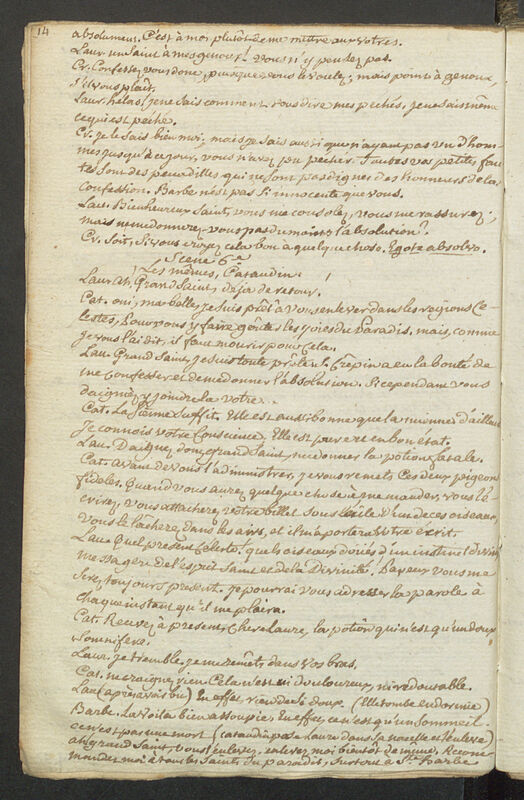 14
absolument. C'est à moi plutôt de me mettre aux vôtres.
Laur. un Saint à mes genoux! vous n'y pensez pas.
Cr. Confessez vous donc, puisque vous le voulez; mais point à genoux,
s'il vous plaît.
Laur. hélas! je ne sais comment vous dire mes péchés, je ne sais même
ce qui est péché.
Cr. je le sais bien moi, mais je sais aussi que n'ayant pas vu d'hom-
mes jusqu'à ce jour, vous n'avez pu pécher. Toutes vos petites fau
tes sont des peccadilles qui ne sont pas dignes des honneurs de la
Confession. Barbe n'est pas si innocente que vous.
Lau. Bienheureux Saint, vous me consolez, vous me rassurez;
mais ne me donnerez vous pas du moins l'absolution?
Cr. Soit, si vous croyez cela bon à quelque chose. Ego te absolvo.
Scene 6e
Les mêmes, Cataudin.
Laur. Ah, Grand Saint, déja de retour.
Cat. oui, ma belle, je suis prêt à vous enlever dans les regions Ce-
lestes, pour vous y faire goûter les joies du Paradis, mais, comme
je vous l'ai dit, il faut mourir pour cela.
Lau. Grand Saint, je suis toute prête. St. Crêpin a eu la bonté de
me Confesser et de me donner l'absolution. Si cependant vous
daigniez y joindre la votre..
Cat. La sienne suffit. Elle est aussi bonne que la mienne d'ailleurs
je connois votre Conscience. Elle est pure et en bon état.
Lau. Daignez donc, grand Saint, me donner la potion fatale.
Cat. avant de vous l'administrer, je vous remets ces deux pigeons
fideles. Quand vous aurez quelque chose à me mander, vous l'é-
crirez, vous attacherez votre billet sous l'aîle d'un de ces oiseaux,
vous le lâcherez dans les airs, et il m'apportera votre écrit.
Lau. Quel présent céleste! quels oiseaux doués d'un instinct divin
messagers de l'esprit Saint et de la Divinité. Par eux vous me
serez toujours présent. je pourrai vous adresser la parole à
chaque instant qu'il me plaira.
Cat. Recevez à présent, chere Laure, la potion qui n'est qu'un doux
somnifere.
Laur. je tremble, je me remets dans vos bras.
Cat. ne craignez rien. Cela n'est ni douloureux, ni redoutable.
Lau. (après avoir bu) En effet rien de si doux. (Elle tombe endormie)
Barbe. La voila bien assoupie. En effet, ce n'est qu'un sommeil
ce n'est pas une mort (cataudin pose Laure dans sa nacelle et l'enleve)
ah grand Saint, vous l'enlevez, enlevez moi bientôt de même. Recom-
mandez moi à tous les Saints du paradis, surtout à Ste. Barbe